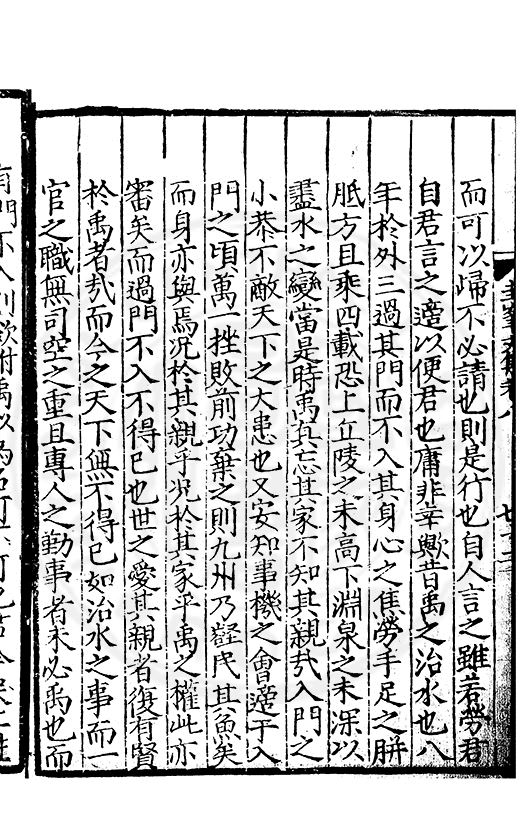 而可以歸不必請也則是行也自人言之雖若勞君
自君言之適以便君也庸非幸歟昔禹之治水也八
年於外三過其門而不入其身心之焦勞手足之胼
胝方且乘四載恐上丘陵之未高下淵泉之未深以
盡水之變當是時禹真忘其家不知其親㢤入門之
小恭不敵天下之大患也又安知事機之會適于入
門之頃萬一挫敗前功棄之則九州乃壑民其魚矣
而身亦與焉况於其親乎况於其家乎禹之權此亦
審矣而過門不入不得已也世之愛其親者復有賢
於禹者㢤而今之天下無不得已如治水之事而一
官之職無司空之重且專人之勤事者未必禹也而